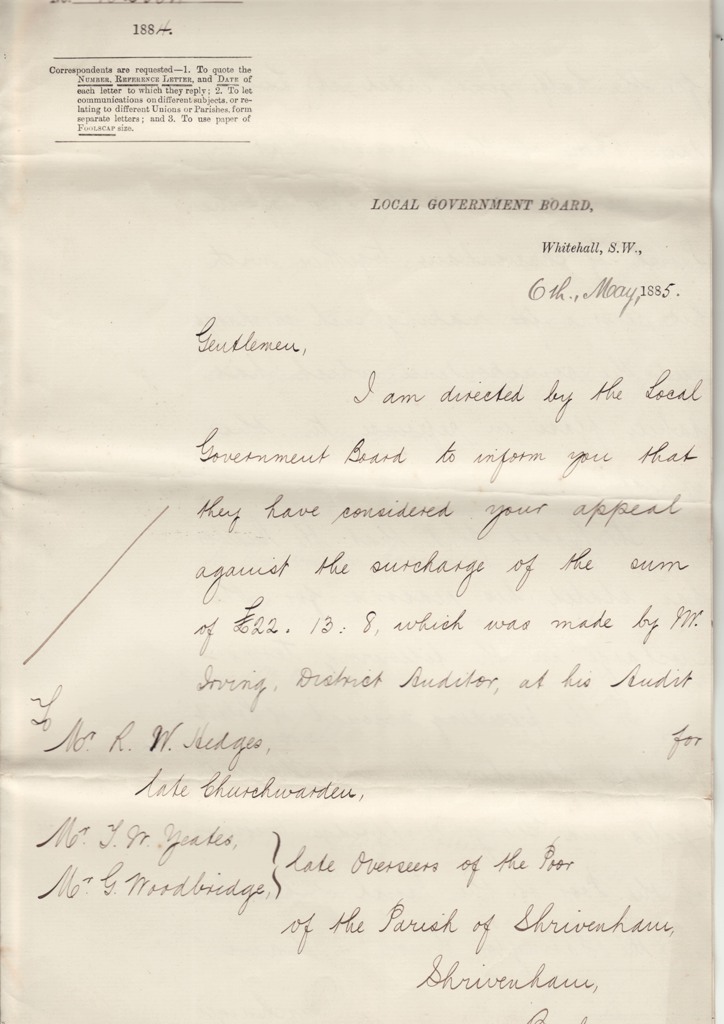 1884.
Correspondents are requested—1. To quote the
NUMBER, REFERENCE LETTER, and DATE of
each letter to which they reply; 2. To let
communications on different subjects, or re-
lating to different Unions or Parishes, form
separate letters; and 3. To use paper of
FOOLSCAP size.
LOCAL GOVERNMENT BOARD,
Whitehall, S.W.,
6th., May, 1885.
Gentlemen,
I am directed by the Local
Government Board to inform you that
they have considered your appeal
against the surcharge of the sum
of £22. 13: 8, which was made by Mr.
Irving, District Auditor, at his Audit
for
To
Mr. R. W. Hedges,
late Churchwarden,
Mr. T. W. Yeates,
Mr. G. Woodbridge,
late Overseers of the Poor
of the Parish of Shrivenham,
Shrivenham,